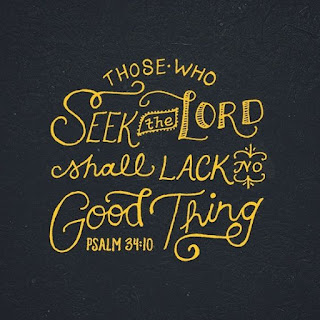 THOSE·WHO
SEEK the LORD
shall LACK NO
Good Thing
PSALM 34:10